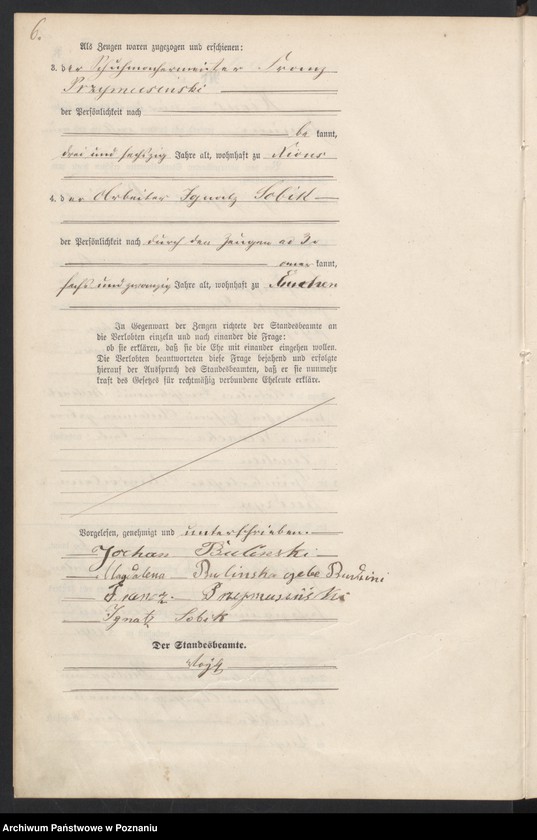 6.
Als Zeugen waren zugezogen und erschienen:
3. der Schuhmachermeister Franz
Przymusinski
der Persönlichkeit nach
be kannt,
drei und sechszig Jahre alt, wohnhaft zu Xions
4. der Arbeiter Ignatz Sobik
der Persönlichkeit nach durch den Zeugen ad 3
aner kannt,
sechs und zwanzig Jahre alt, wohnhaft zu
In Gegenwart der Zeugen richtete der Standesbeamte an
die Verlobten einzeln und nach einander die Frage:
ob sie erklären, daß sie die Ehe mit einander eingehen wollen.
Die Verlobten beantworteten diese Frage bejahend und erfolgte
hierauf der Ausspruch des Standesbeamten, daß er sie nunmehr
kraft des Gesetzes für rechtmäßig verbundene Eheleute erkläre.
Vorgelesen, genehmigt und unterschrieben.
Johan Bulinski
Magdalena Bulinska gebe
Franz Przymusinski
Ignatz Sobik
Der Standesbeamte.
Archiwum Państwowe w Poznaniu